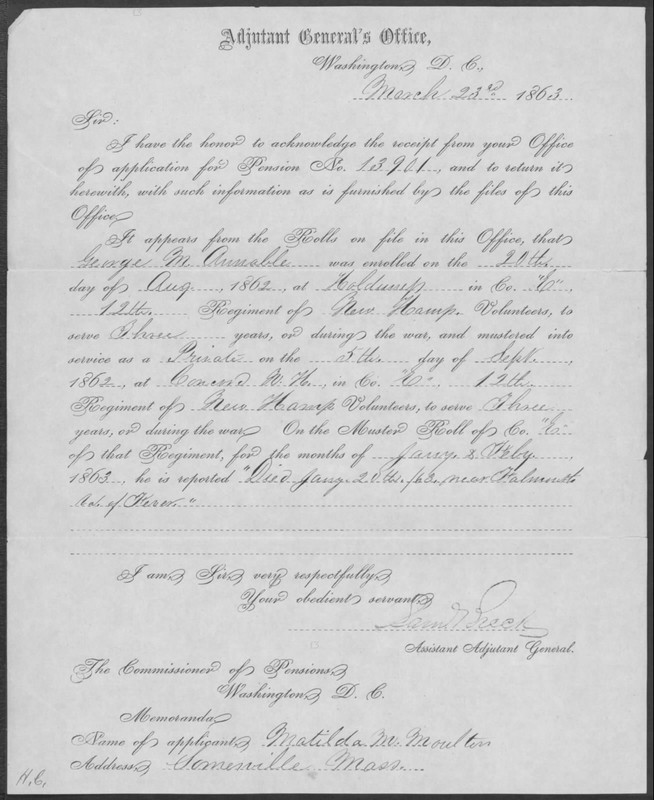 Adjutant General's Office,
Washington, D. C.,
March 23rd 1863
Sir:
I have the honor to acknowledge the receipt from your Office
of application for Pension No. 13.901, and to return it
herewith, with such information as is furnished by the files of this
Office.
It appears from the Rolls on file in this Office, that
George M. Annable was enrolled on the 20th
day of Aug, 1862, at in Co. "E",
12th Regiment of New Hamp. Volunteers, to
serve Three years, or during the war, and mustered into
service as a Private on the 5th day of Sept,
1862, at Concord N. H., in Co. "E", 12th
Regiment of New Hamp Volunteers, to serve Three
years, or during the war. On the Muster Roll of Co. "E"
of that Regiment, for the months of Jany & Feby,
1863, he is reported "Died Jany 20th /63, near Falmouth
Va. of Fever."
I am, Sir, very respectfully,
Your obedient servant,
Saml Breck
Assistant Adjutant General.
The Commissioner of Pensions,
Washington, D. C.
Memoranda
Name of applicant, Matilda M. Moulton
Address, Somerville Mass.
H.C.